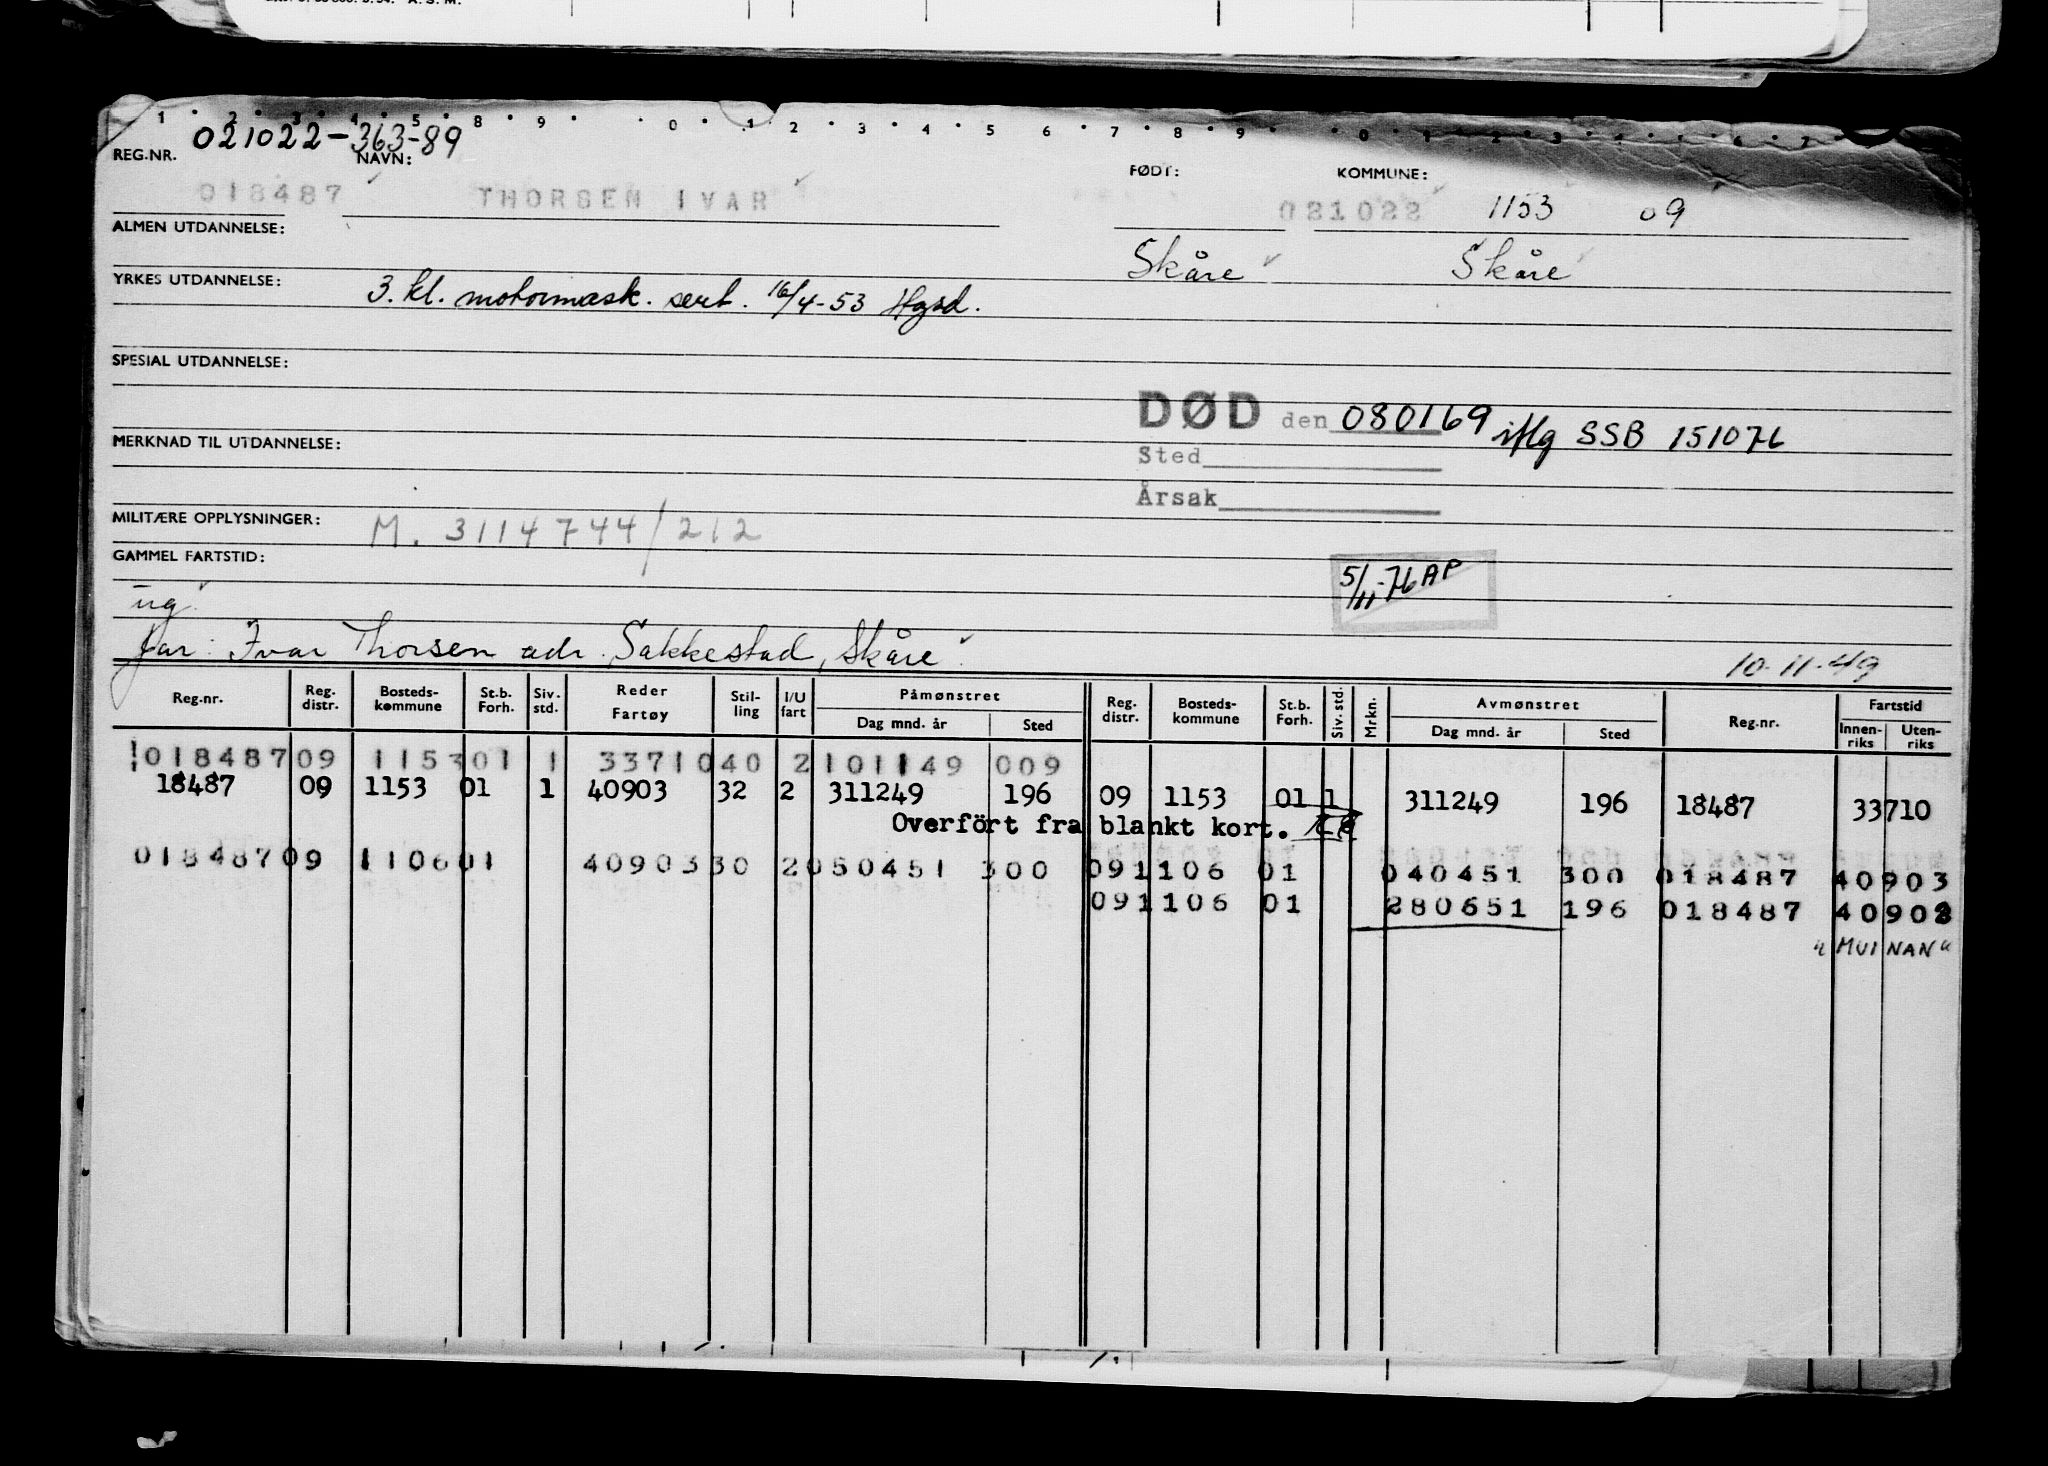 1 2 3 4 5 8 9 0 1 2 3 4 5 6 7 8 9 0 1 2 3 4 5 6 7
021022-363-89
REG.NR. NAVN: FØDT: KOMMUNE:
018487 THORSEN IVAR 021022 1153 09
ALMEN UTDANNELSE: Skåre Skåre
YRKES UTDANNELSE: 3. kl. motormask. sert. 16/4-53 Hgsd.
SPESIAL UTDANNELSE:
DØD den 080169 iflg SSB 151076
MERKNAD TIL UTDANNELSE:
Sted
Årsak
MILITÆRE OPPLYSNINGER: M. 3114744/212
GAMMEL FARTSTID:
5/11-76 AP
ug.
far: Ivar Thorsen adr. Sakkestad, Skåre. 10-11-49
Reg.nr. Reg. distr. Bosteds-kommune St.b. Forh. Siv. std. Reder Fartøy Stil-ling I/U fart Påmønstret Dag mnd. år Sted Reg. distr. Bosteds-kommune St.b. Forh. Siv. std. Mrkn. Avmønstret Dag mnd. år Sted Reg.nr. Fartstid Innen-riks Uten-riks
018487 09 1153 01 1 33710 40 2 101149 009
18487 09 1153 01 1 40903 32 2 311249 196 09 1153 01 1 311249 196 18487 33710
Overført fra blankt kort.
018487 09 1106 01 40903 30 2 050451 300 09 1106 01 040451 300 018487 40903
09 1106 01 280651 196 018487 40903
"MUINAN"